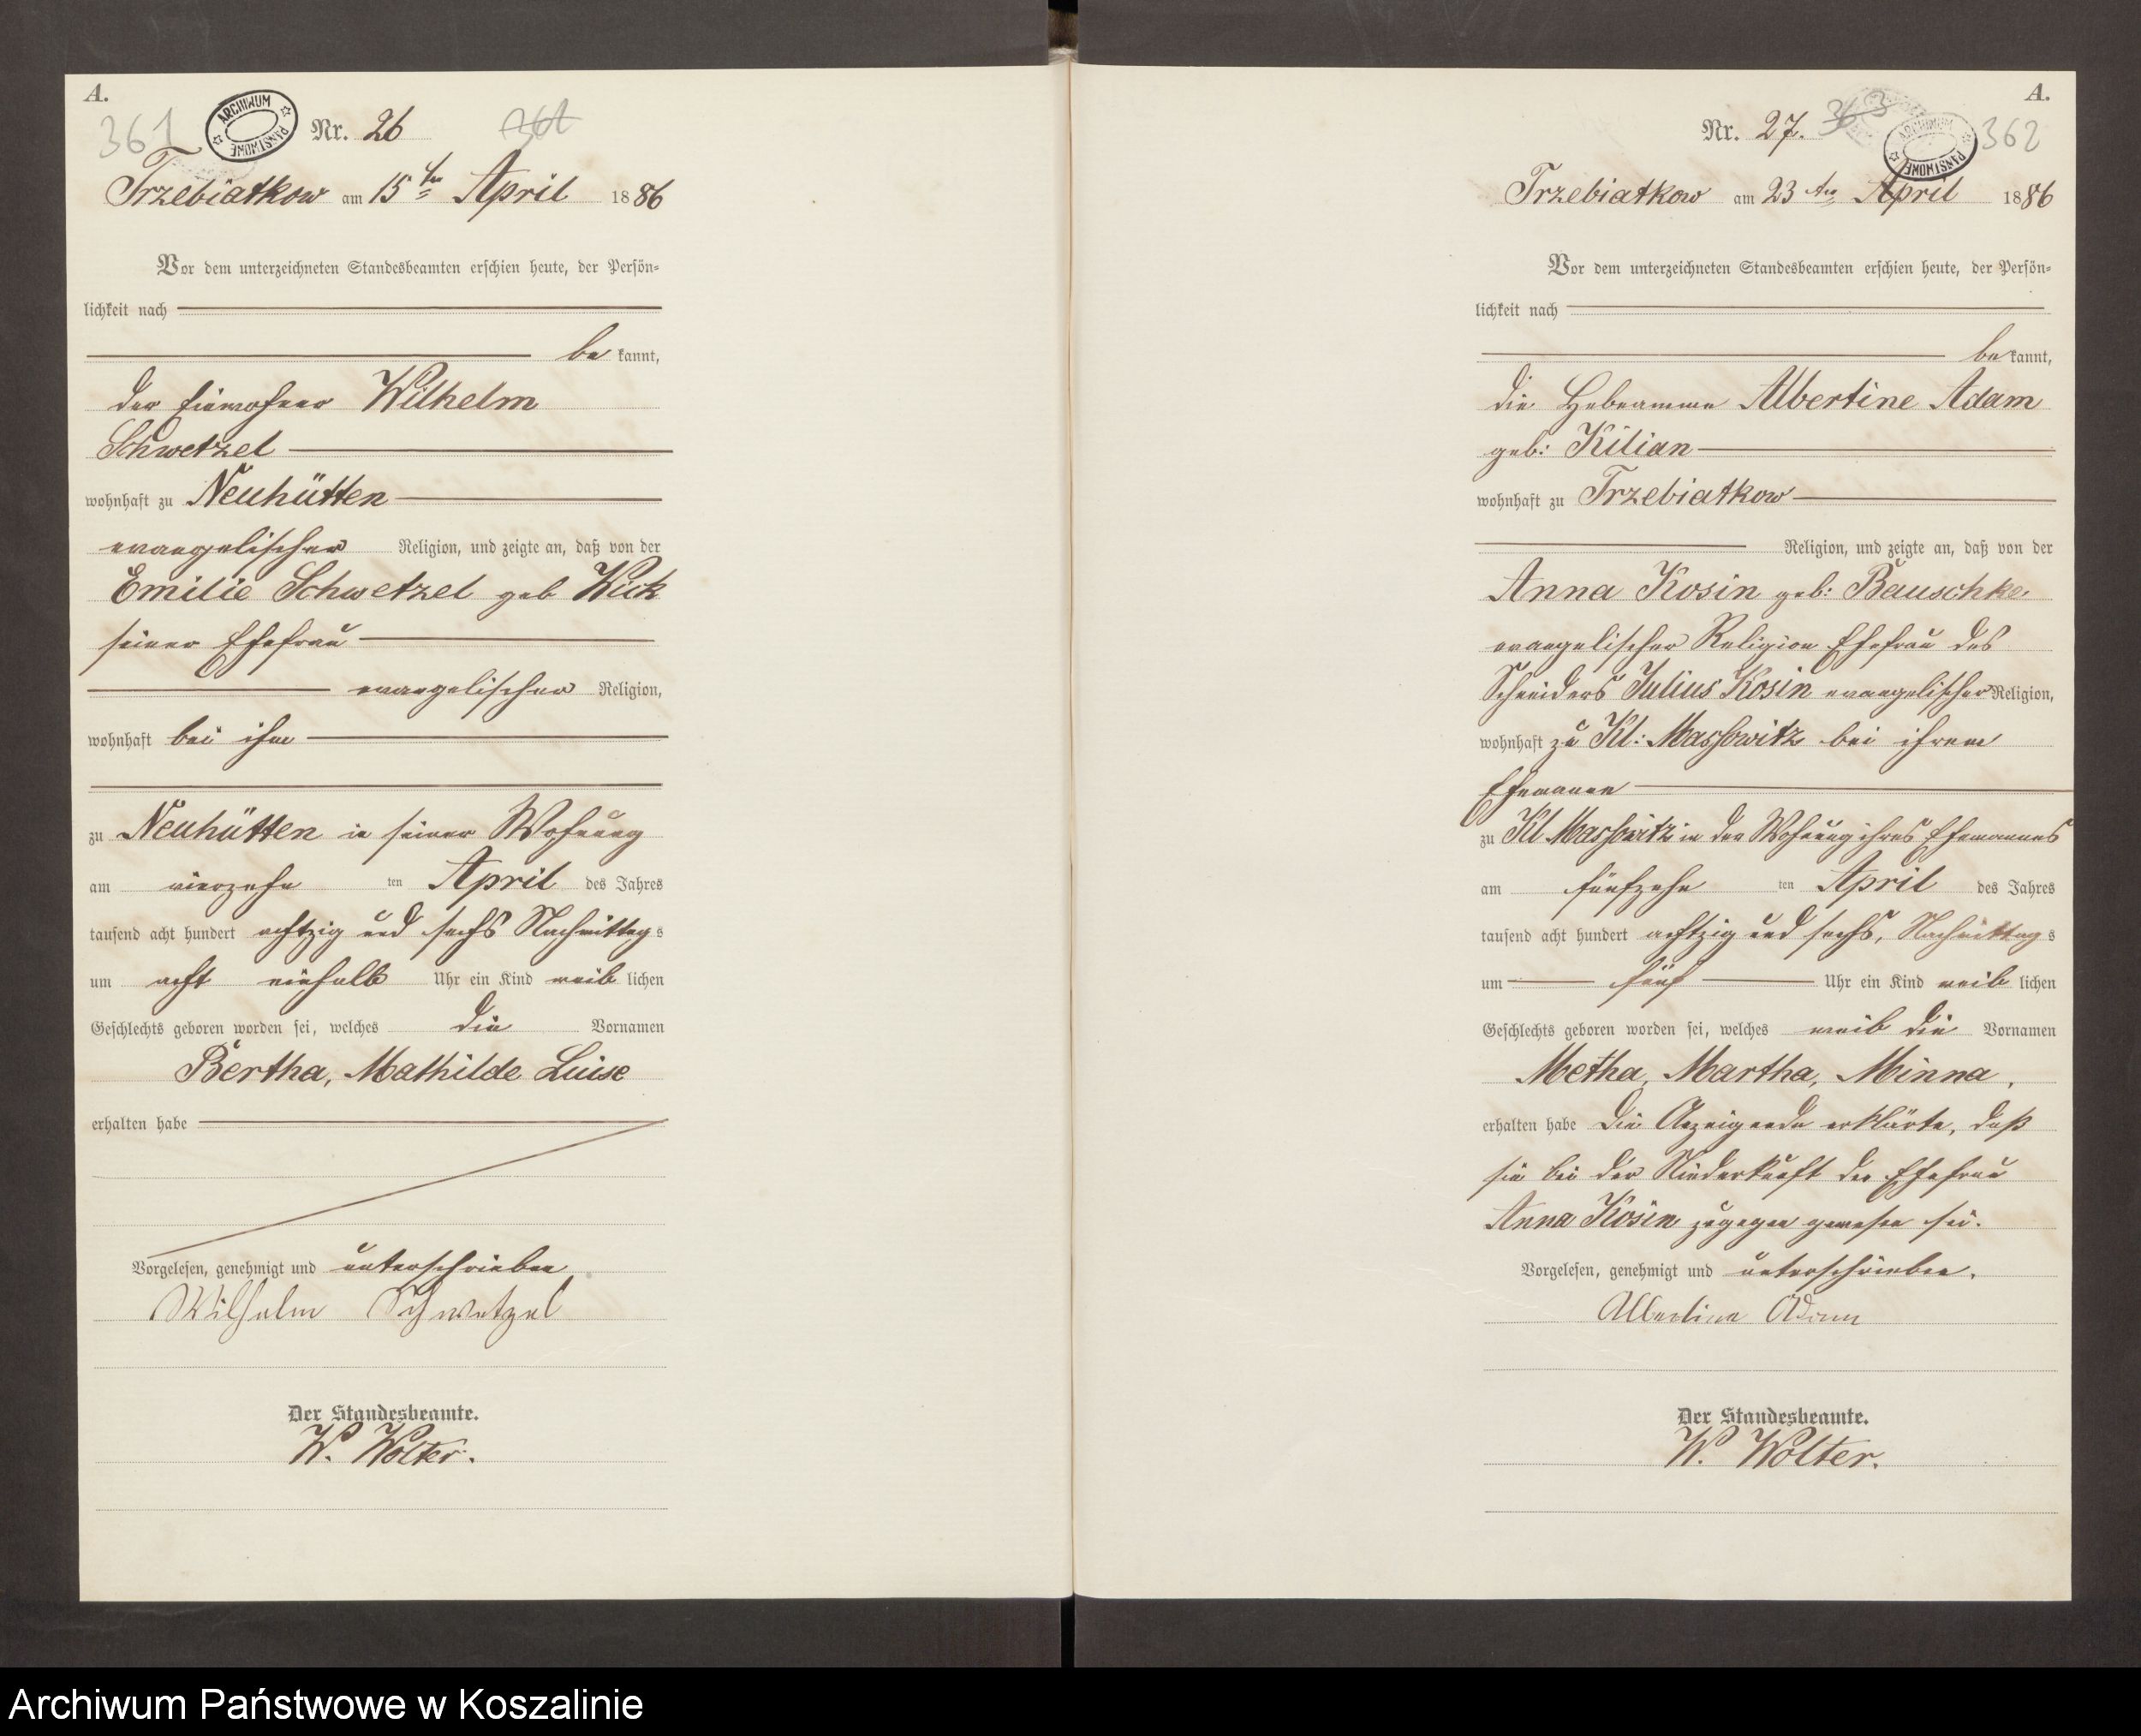 A.
361
ARCHIWUM PAŃSTWOWE
Nr. 26
362
Trzebiatkow am 15ten April 1886
Vor dem unterzeichneten Standesbeamten erschien heute, der Persön-
lichkeit nach
be kannt,
der Einwohner Wilhelm
Schwetzel
wohnhaft zu Neuhütten
evangelischer Religion, und zeigte an, daß von der
Emilie Schwetzel geb Wick
seiner Ehefrau
evangelischer Religion,
wohnhaft bei ihm
zu Neuhütten in seiner Wohnung
am vierzehn ten April des Jahres
tausend acht hundert achtzig und sechs Nachmittag s
um acht einhalb Uhr ein Kind weib lichen
Geschlechts geboren worden sei, welches die Vornamen
Bertha, Mathilde Luise
erhalten habe
Vorgelesen, genehmigt und unterschrieben
Wilhelm Schwetzel
Der Standesbeamte.
W. Wolter.
A.
Nr. 27. 363
ARCHIWUM PAŃSTWOWE
362
Trzebiatkow am 23ten April 1886
Vor dem unterzeichneten Standesbeamten erschien heute, der Persön-
lichkeit nach
be kannt,
die Hebeamme Albertine Adam
geb: Kilian
wohnhaft zu Trzebiatkow
Religion, und zeigte an, daß von der
Anna Kosin geb: Bauschke
evangelischer Religion Ehefrau des
Schneiders Julius Kosin evangelischer Religion,
wohnhaft zu Kl: Massowitz bei ihrem
Ehemann
zu Kl Massowitz in der Wohnung ihres Ehemannes
am fünfzehn ten April des Jahres
tausend acht hundert achtzig und sechs, Nachmittag s
um fünf Uhr ein Kind weib lichen
Geschlechts geboren worden sei, welches weib die Vornamen
Metha, Martha, Minna,
erhalten habe Die Anzeigende erklärte, daß
sie bei der Niederkunft der Ehefrau
Anna Kosin zugegen gewesen sei.
Vorgelesen, genehmigt und unterschrieben.
Albertine Adam
Der Standesbeamte.
W. Wolter.
Archiwum Państwowe w Koszalinie